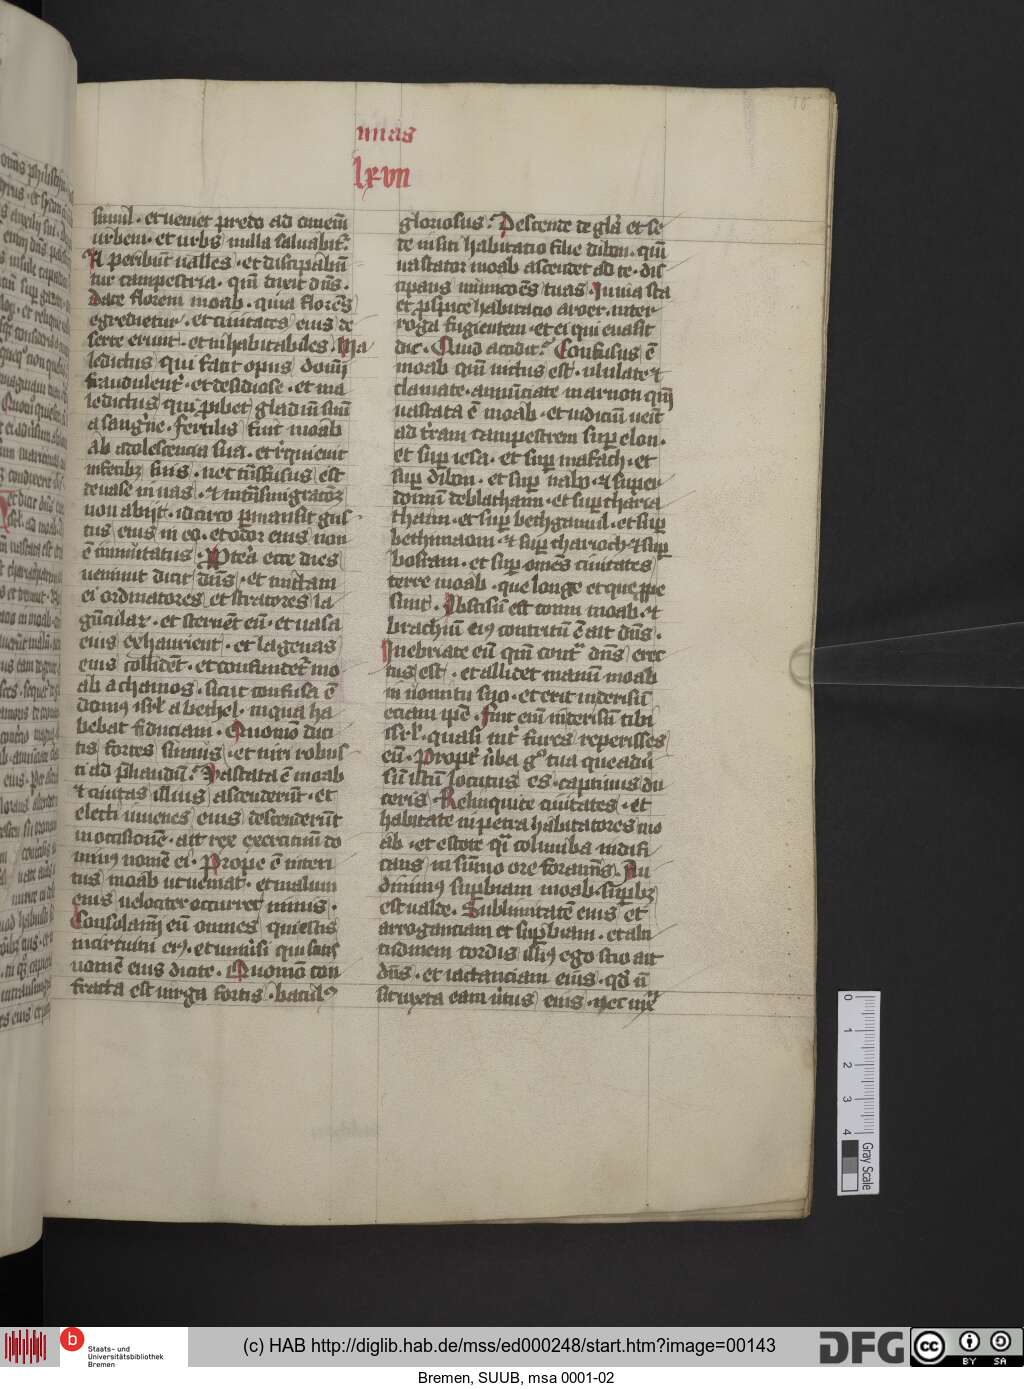 mias
lxvii
simul · et ueniet predo ad om̄em
urbem · et urbs nulla saluabit᷑
Et peribunt ualles · et dissipabūt
tur campestria · qm̄ dixit dn̄s ·
Date florem moab · quia florēs
egredietur · et ciuitates eius de
serte erunt · et inhabitabiles · Ma
ledictus qui facit opus domī
fraudulent᷑ · et desidiose · et ma
ledictus qui ꝓhibet gladiū suū
a sanguīe · fertilis fuit moab
Ab adolescencia sua · et requieuit
in fecibꝫ suis · nec tn̄sfusus est
de uase in uas · ⁊ in tn̄smigratōꝫ
non abijt · idcirco ꝑmansit gus
tus eius in eo · et odor eius non
ē inmutatus · Ꝓpterea ecce dies
ueniunt dicit dn̄s · et mittam
ei ordinatores et stratores la
gūcular · et sternēt eū · et uasa
eius exhaurient · et lagenas
eius collidēt · et confundet᷑ mo
ab a chamos · sicut confusa ē
domꝰ isrl̄ a bethel · in qua ha
bebat fiduciam · Quomō dici
tis fortes sumus · et uiri robus
ti ad p̄liandū · Vastata ē moab
⁊ ciuitas illius ascenderūt · et
electi iuuenes eius descenderūt
in occisionē · ait rex exercituū do
minꝰ nomē ei · Prope ē interi
tus moab ut ueniat · et malum
eius uelociter occurret nimis ·
Consolamī eū omnes qui estis
in circuitu eiꝰ · et uniūsi qui scitis
nomē eius dicite · Quomō con
fracta est uirga fortis · baculꝰ
gloriosus · Descende de glā et se
de in siti habitatio filie dibon · qm̄
uastator moab ascendet ad te · dis
sipans municōes tuas · In uia sta
et ꝓspice habitacio aroer · inter
roga fugientem · et ei qui euasit
dic · Quid accidit · Confusus ē
moab qm̄ uictus est · ululate ⁊
clamate · annūciate in arnon qm̄
uastata ē moab · et iudiciū uenit
ad t̄ram campestrem suꝑ elon ·
et suꝑ iesa · et suꝑ mefach · et
suꝑ dibon · et suꝑ nabo · ⁊ super
domū deblathaim · et suꝑ charia
thaim · et suꝑ bethgamul · et suꝑ
bethmaom · ⁊ suꝑ charioch · ⁊ suꝑ
bosram · et suꝑ omēs ciuitates
terre moab · que longe et que ꝓpe
sunt · Abscisū est cornu moab · ⁊
brachiū eiꝰ contritū ē ait dn̄s ·
Inebriate eū qm̄ cont᷑ dn̄s erec
tus est · et allidet manū moab
in uomitu suo · et erit in derisū
eciam ip̄e · fuit em̄ in derisū tibi
isrl̄ · quasi int᷑ fures reperisses
eū · Propt᷑ ūba gͦ tua que adū
sū illū locutus es · captiuus du
ceris · Relinquite ciuitates · et
habitate in petra habitatores mo
ab · et estote qͥ columba nidifi
cans in sūmo ore foramīs · Au
diuimꝰ suꝑbiam moab · suꝑbꝫ
est ualde · Sublimitatē eius et
arroganciam et suꝑbiam · et alti
tudinem cordis illiꝰ ego scio ait
dn̄s · et iactanciam eius · qd̄ nō
sit iuxta eam ūtus eius · nec iux̄
(c) HAB http://diglib.hab.de/mss/ed000248/start.htm?image=00143
Bremen, SUUB, msa 0001-02
Staats- und
Universitätsbibliothek
Bremen
DFG
CC BY SA
0 1 2 3 4
Gray Scale